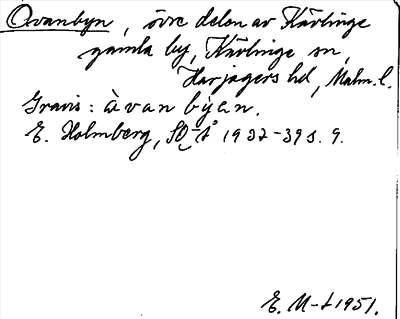 Ovanbyn, övre delen av Kävlinge
gamla by, Kävlinge sn,
Harjagers hd, Malm. l.
Gravis: àvan býen.
E. Holmberg, 1937-39 s. 9.
E. M-t 1951.